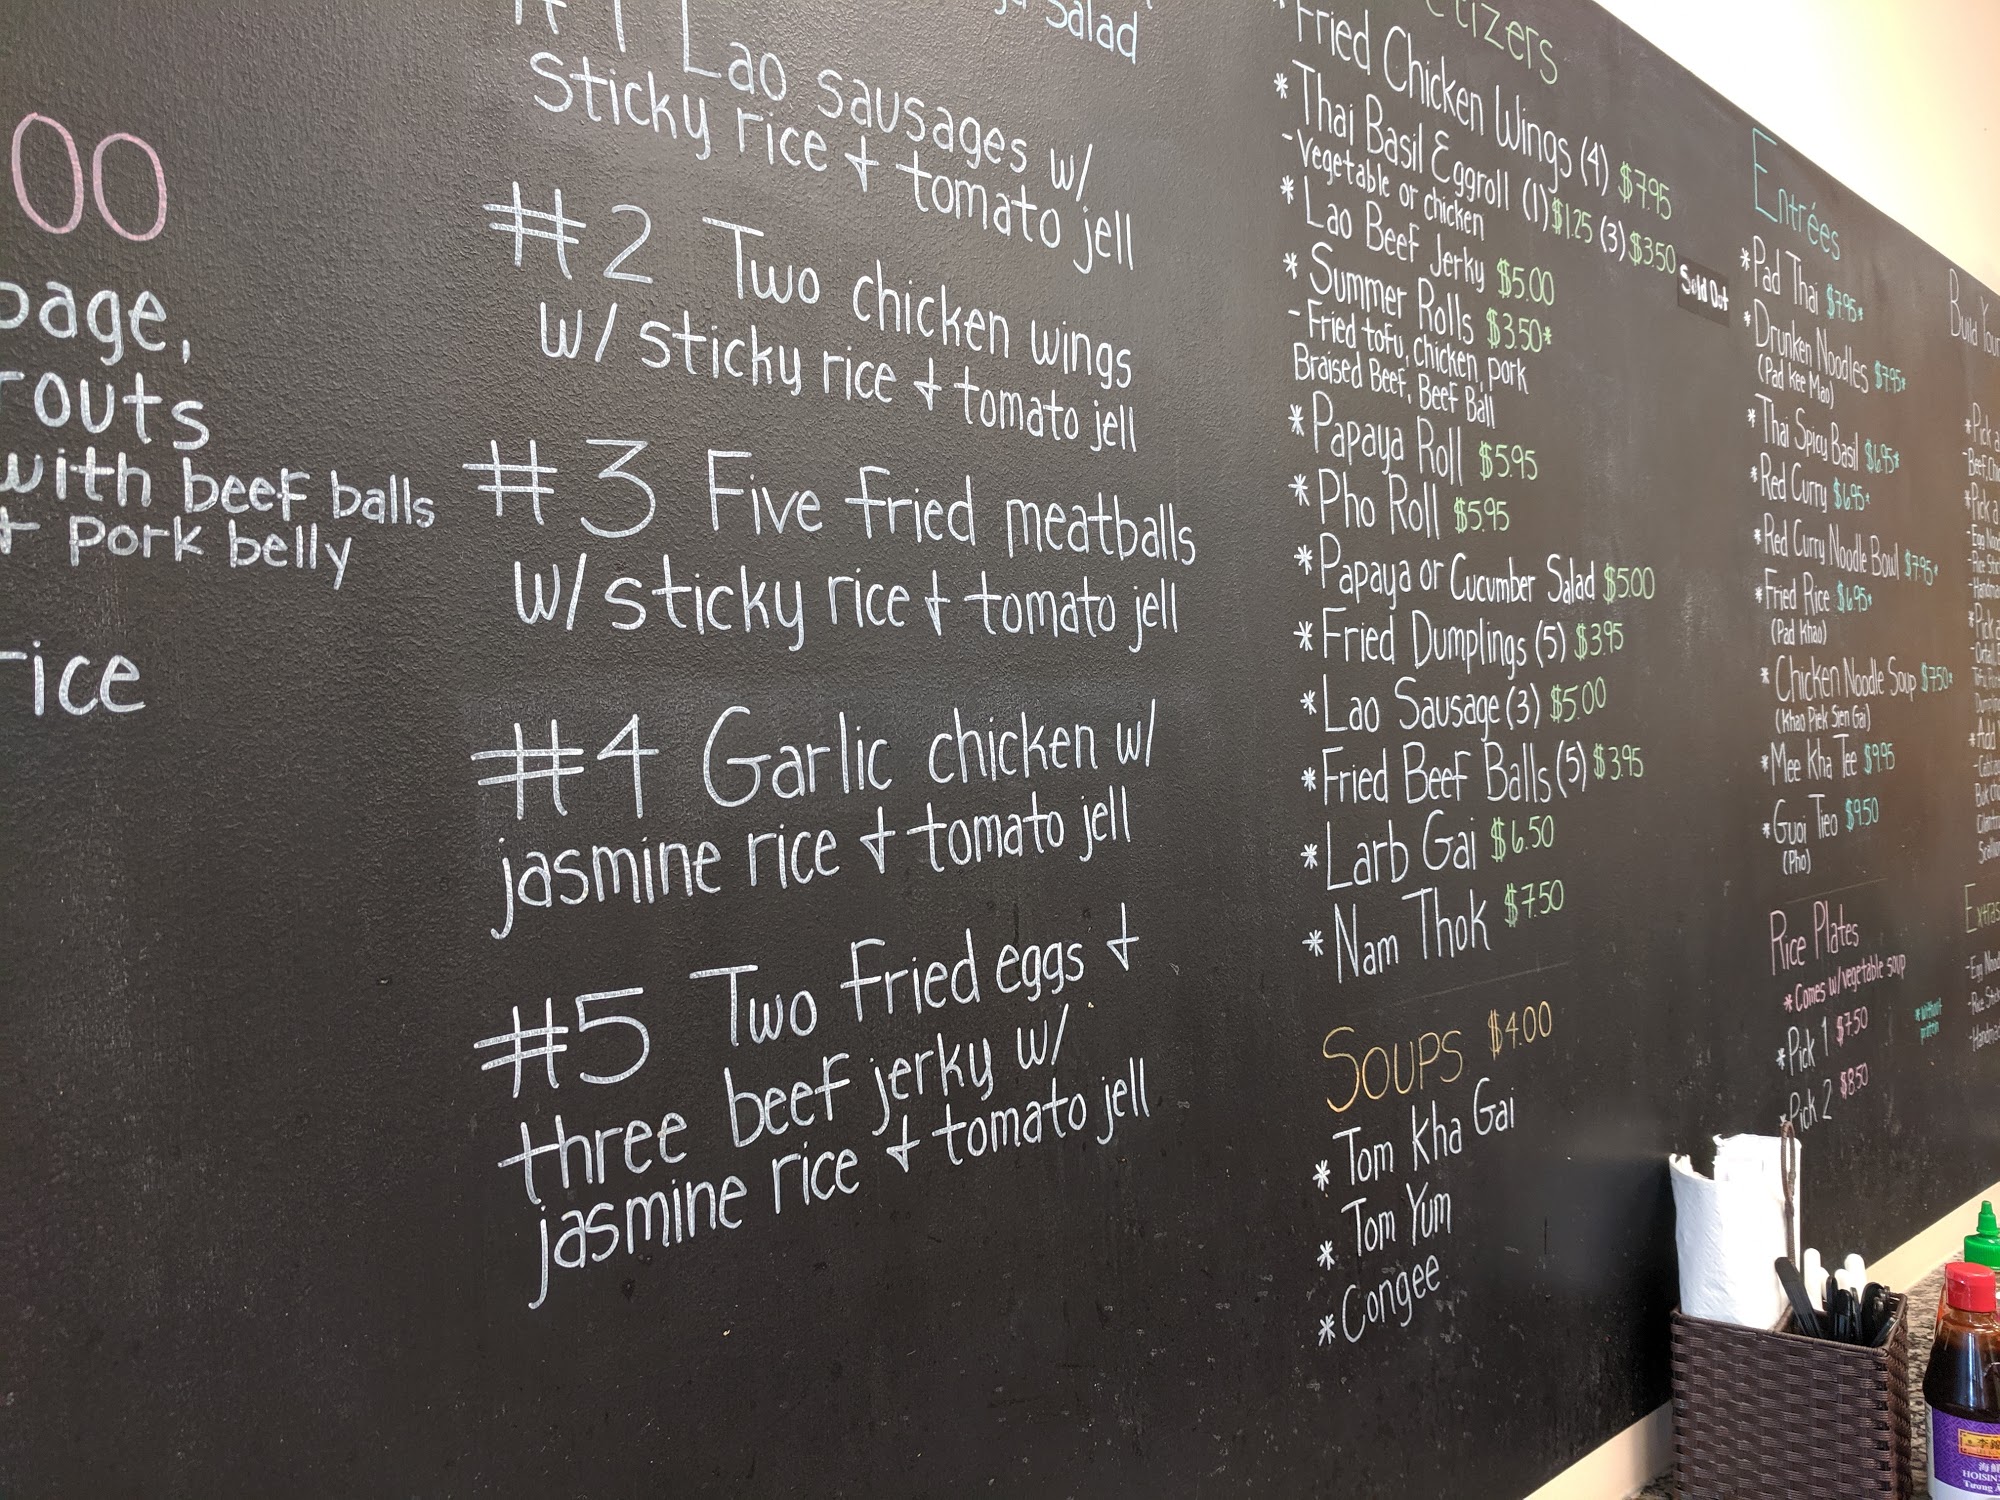 00
page,
routs
with beef balls
+ pork belly
rice
Salad
#1 Lao sausages w/
Sticky rice + tomato jell
#2 Two chicken wings
w/ sticky rice + tomato jell
#3 Five fried meatballs
w/ sticky rice + tomato jell
#4 Garlic chicken w/
jasmine rice + tomato jell
#5 Two fried eggs +
three beef jerky w/
jasmine rice + tomato jell
etizers
*Fried Chicken Wings (4) $7.95
*Thai Basil Eggroll (1) $1.25 (3) $3.50
-Vegetable or chicken
*Lao Beef Jerky $5.00
Sold Out
*Summer Rolls $3.50*
-Fried tofu, chicken, pork
Braised Beef, Beef Ball
*Papaya Roll $5.95
*Pho Roll $5.95
*Papaya or Cucumber Salad $5.00
*Fried Dumplings (5) $3.95
*Lao Sausage (3) $5.00
*Fried Beef Balls (5) $3.95
*Larb Gai $6.50
*Nam Thok $7.50
Soups $4.00
*Tom Kha Gai
*Tom Yum
*Congee
Entrées
*Pad Thai $7.95*
*Drunken Noodles $7.95*
(Pad Kee Mao)
*Thai Spicy Basil $6.95*
*Red Curry $6.95*
*Red Curry Noodle Bowl $7.95*
*Fried Rice $6.95*
(Pad Khao)
*Chicken Noodle Soup $7.50*
(Khao Piek Sien Gai)
*Mee Kha Tee $9.95
*Guoi Tieo $9.50
(Pho)
Rice Plates
*Comes w/vegetable soup
*Pick 1 $7.50
*Pick 2 $8.50
*without
protein
Build Your
*Pick a
-Beef, Chi
*Pick a
-Egg Nood
-Rice Stick
-Handma
*Pick a
*Add
Extras
-Egg Nood
-Rice Stick
-Handma
HOISIN